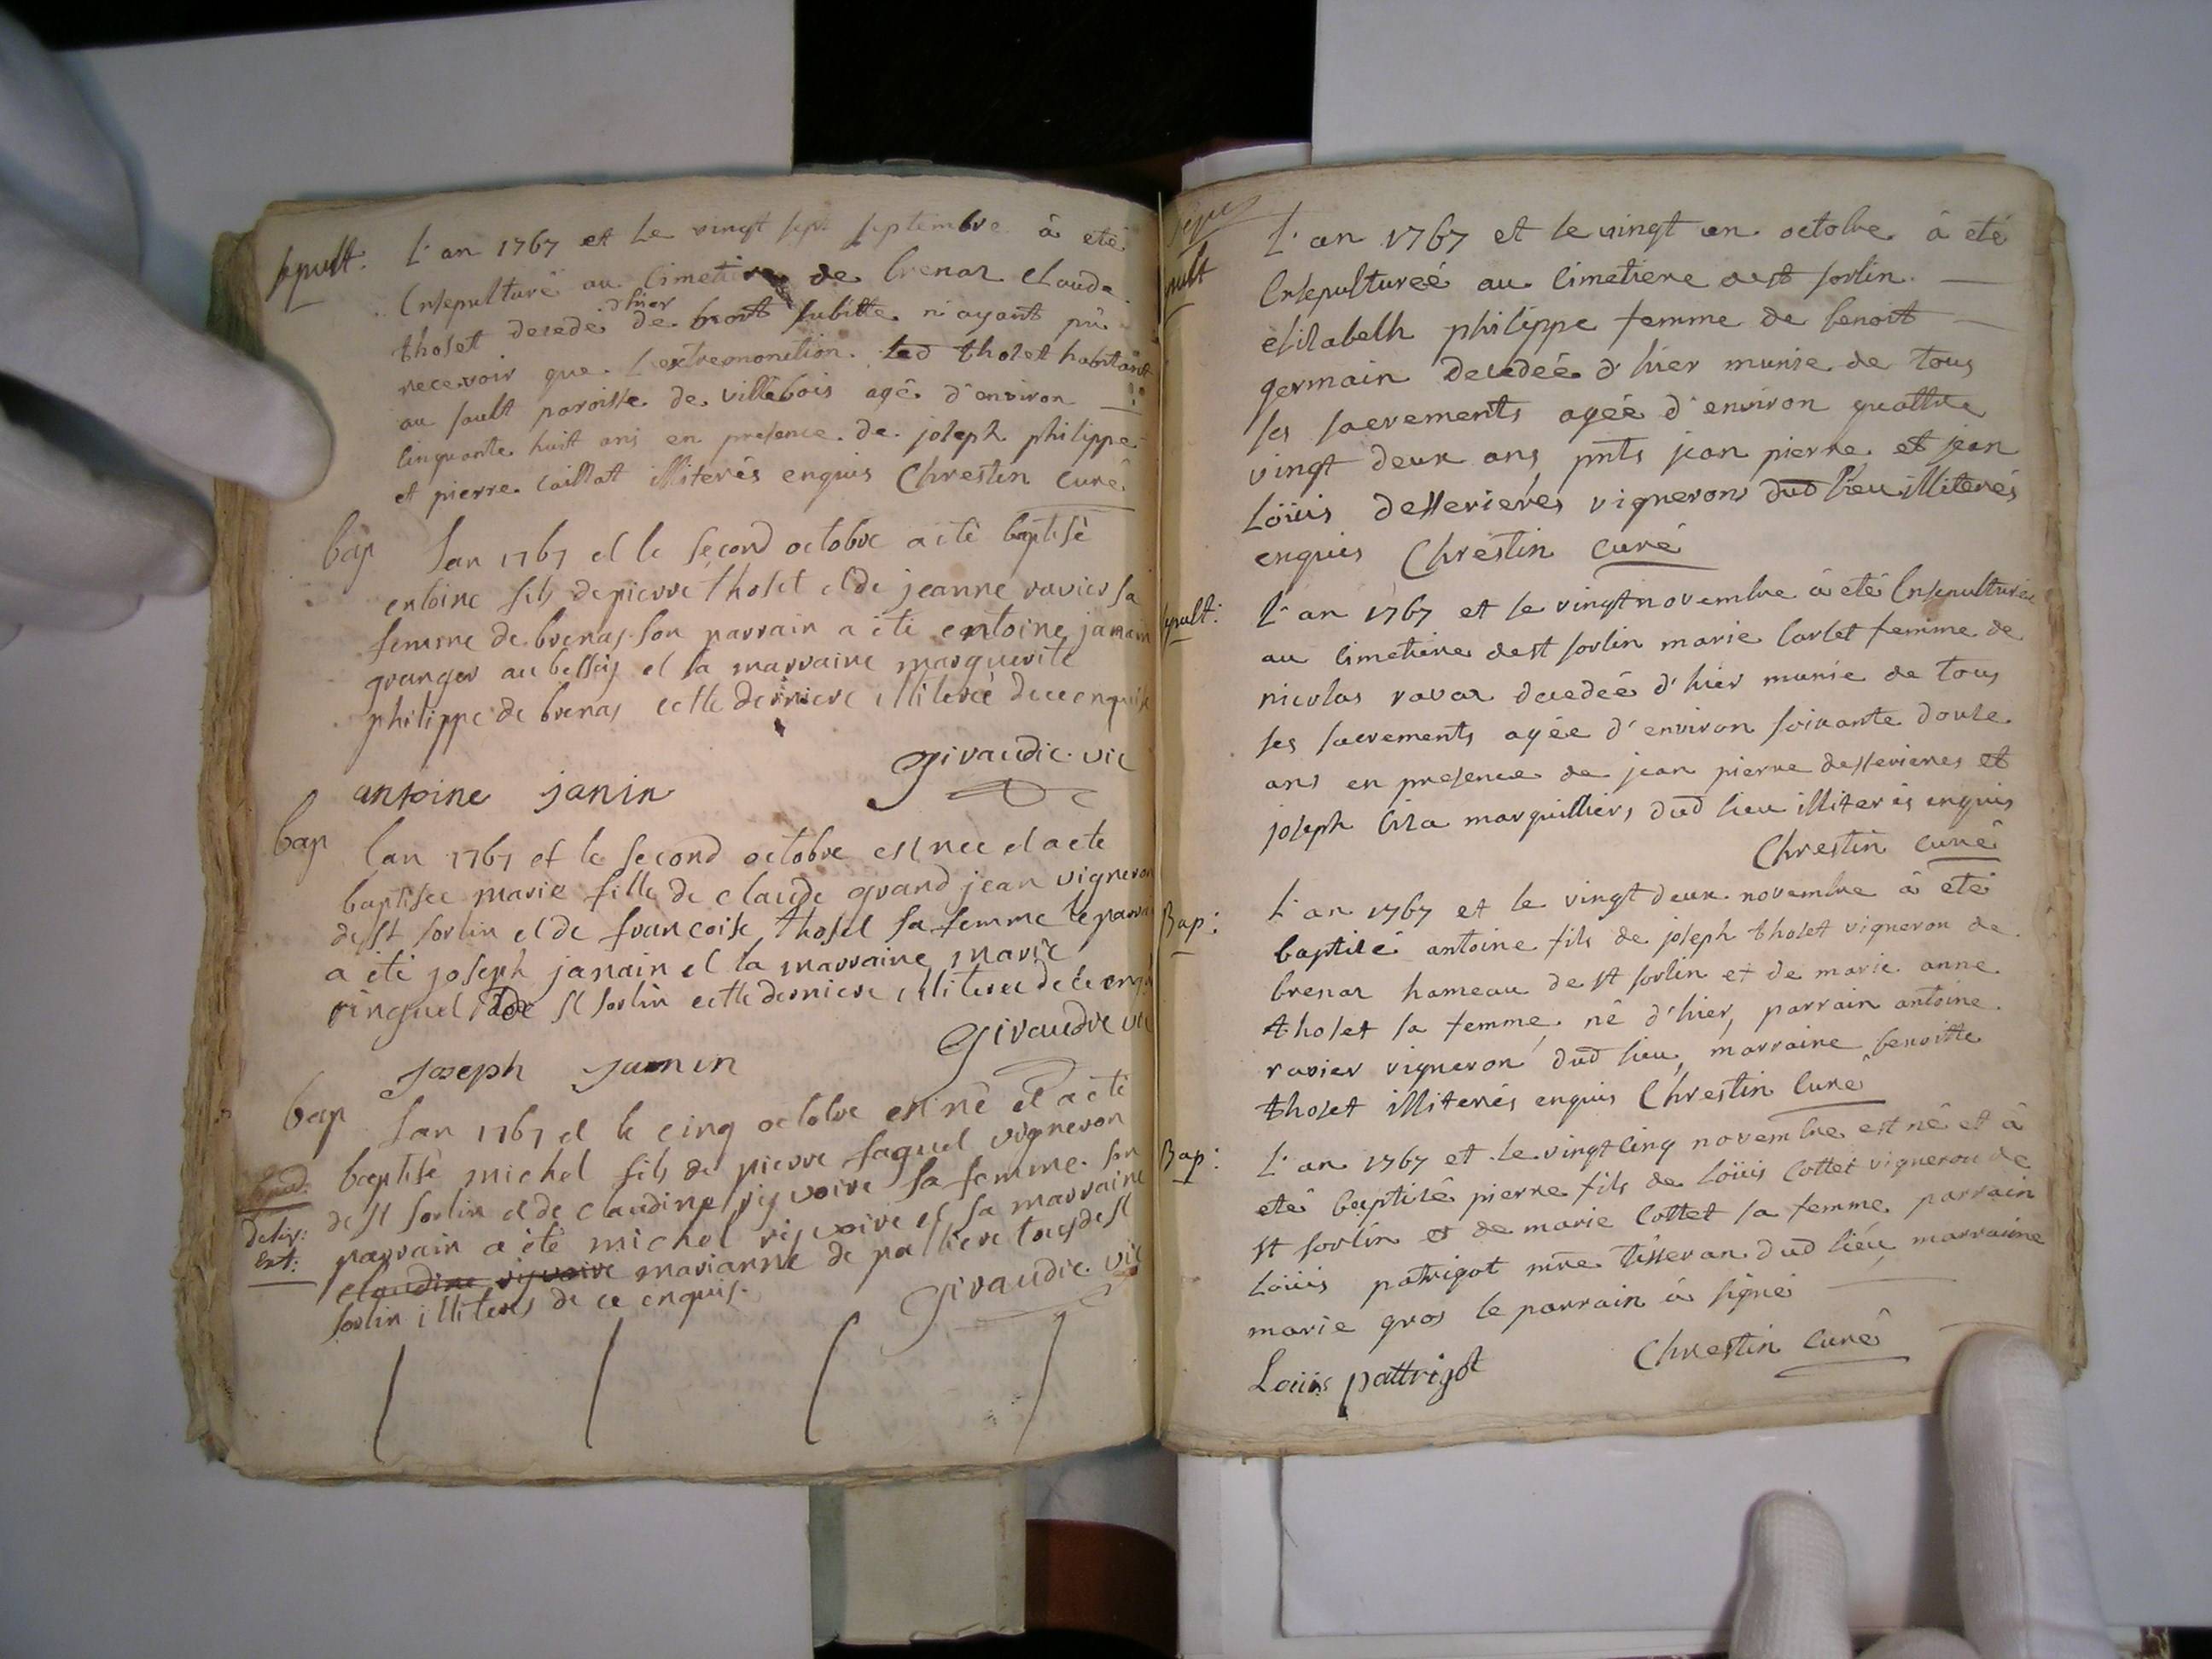 sepult:
L'an 1767 et Le vingt sept septembre à eté
Ensepulturé au Cimetiere de brenaz claude
tholet decedé d'hier de mort subitte n'ayant pû
recevoir que l'extremonction. led tholet habitant
au sault paroisse de villebois agé d'environ
Cinquante huit ans en presence de joseph philippe
et pierre Caillat illiterés enquis Chrestin Curé
bap
Lan 1767 et le second octobre a eté baptisé
entoine fils de pierre tholet et de jeanne ravier sa
femme de brenas son parrain a eté entoine janain
granger au bessey et la marraine marguerite
philippe de brenas cette derniere illiterée de ce enquise
giraudie vic
antoine janin
bap
Lan 1767 et le second octobre est née et a ete
baptisée marie fille de claude grand jean vigneron
de st sorlin et de francoise tholet sa femme le parrain
a eté joseph janain et la marraine marie
ringuet de st sorlin cette derniere illiterée de ce
giraudie vic
Joseph Janin
bap
Lan 1767 et le cinq octobre est né et a eté
baptisé michel fils de pierre faquet vigneron
de st sorlin et de claudine rigvoire sa femme son
deliv:
ext:
parrain a eté michel rigvoire et sa marraine
claudine rigvoire marianne de palliere tous de st
sorlin illiterés de ce enquis.
giraudie vic
sepult
L'an 1767 et le vingt un octobre à eté
Ensepulturée au Cimetiere de st sorlin
elisabeth philippe femme de benoit
germain decedée d'hier munie de tous
ses sacrements agée d'environ quattre
vingt deux ans pnts jean pierre et jean
Loüis desserieres vignerons dud lieu illiterés
enquis Chrestin Curé
sepult:
L'an 1767 et le vingt novembre à eté Ensepulturée
au Cimetiere de st sorlin marie Carlet femme de
nicolas ravaz decedée d'hier munie de tous
ses sacrements agée d'environ soixante douze
ans en presence de jean pierre desserieres et
joseph Ciza marguilliers dud lieu illiterés enquis
Chrestin Curé
Bap:
L'an 1767 et le vingt deux novembre à eté
baptisé antoine fils de joseph tholet vigneron de
brenaz hameau de st sorlin et de marie anne
tholet sa femme, né d'hier, parrain antoine
ravier vigneron dud lieu, marraine benoitte
tholet illiterés enquis Chrestin Curé
Bap:
L'an 1767 et le vingt cinq novembre est né et à
eté baptisé pierre fils de Loüis Cottet vigneron de
st sorlin et de marie Cottet sa femme parrain
Loüis patrigot mtre tisseran dud lieu marraine
marie gros le parrain à signé
Chrestin Curé
Loüis pattrigot